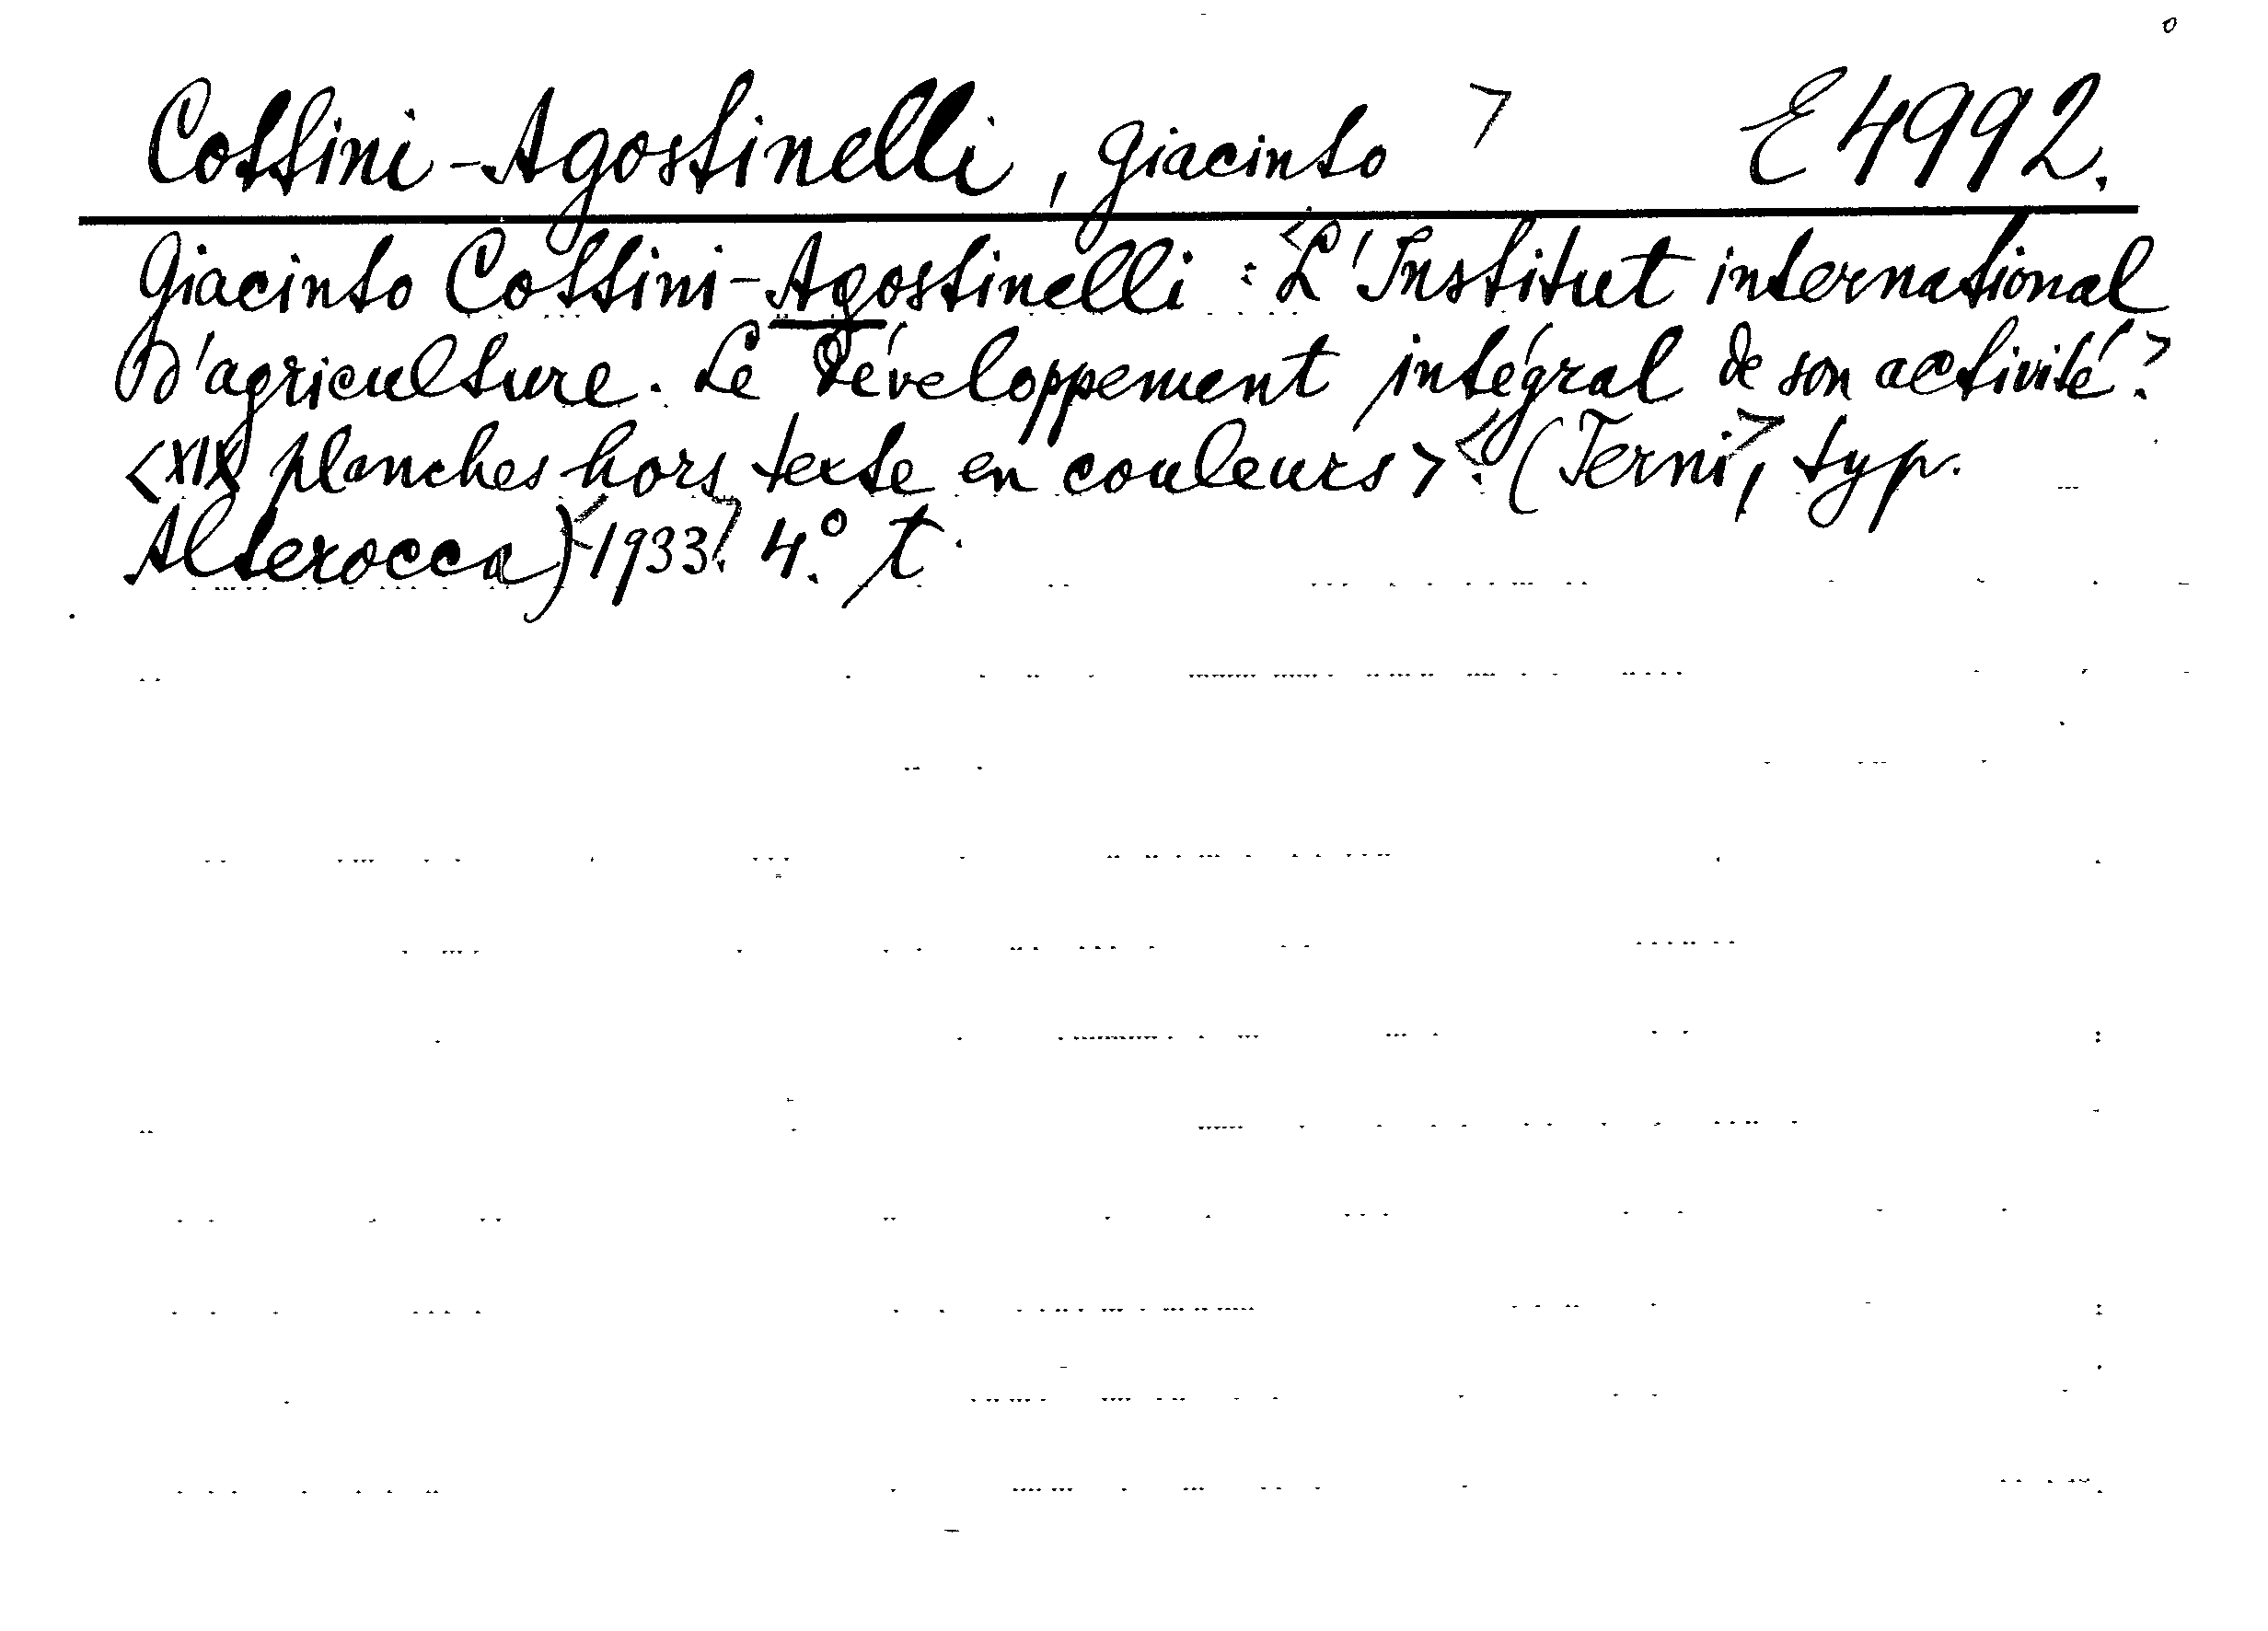 Cottini-Agostinelli, Giacinto > E 4992.
Giacinto Cottini-Agostinelli: <L'Institut international
d'agriculture. Le Développement intégral de son activité.>
<XIX planches hors texte en couleurs>. <(Terni>, typ.
Alterocca) <1933.> 4.° t.